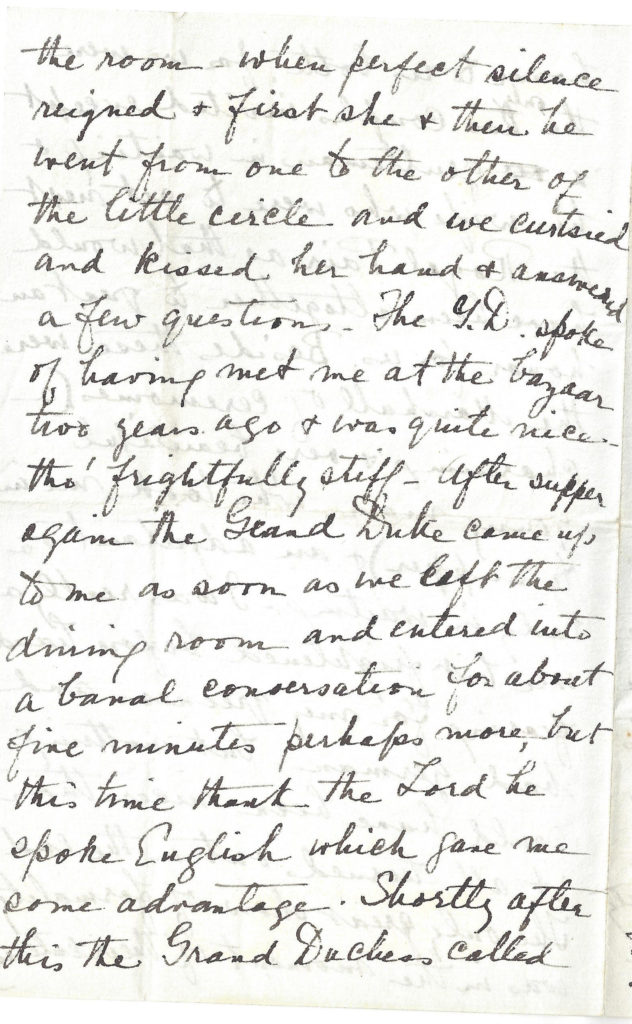 the room - when perfect silence
reigned & first she & then he
went from one to the other of
the little circle and we curtsied
and kissed her hand & answered
a few questions - The G.D. spoke
of having met me at the bazaar
two years ago & was quite nice -
tho' frightfully stiff - After supper
again the Grand Duke came up
to me as soon as we left the
dining room and entered into
a banal conversation for about
five minutes perhaps more, but
this time thank the Lord he
spoke English which gave me
some advantage. Shortly after
this the Grand Duchess called